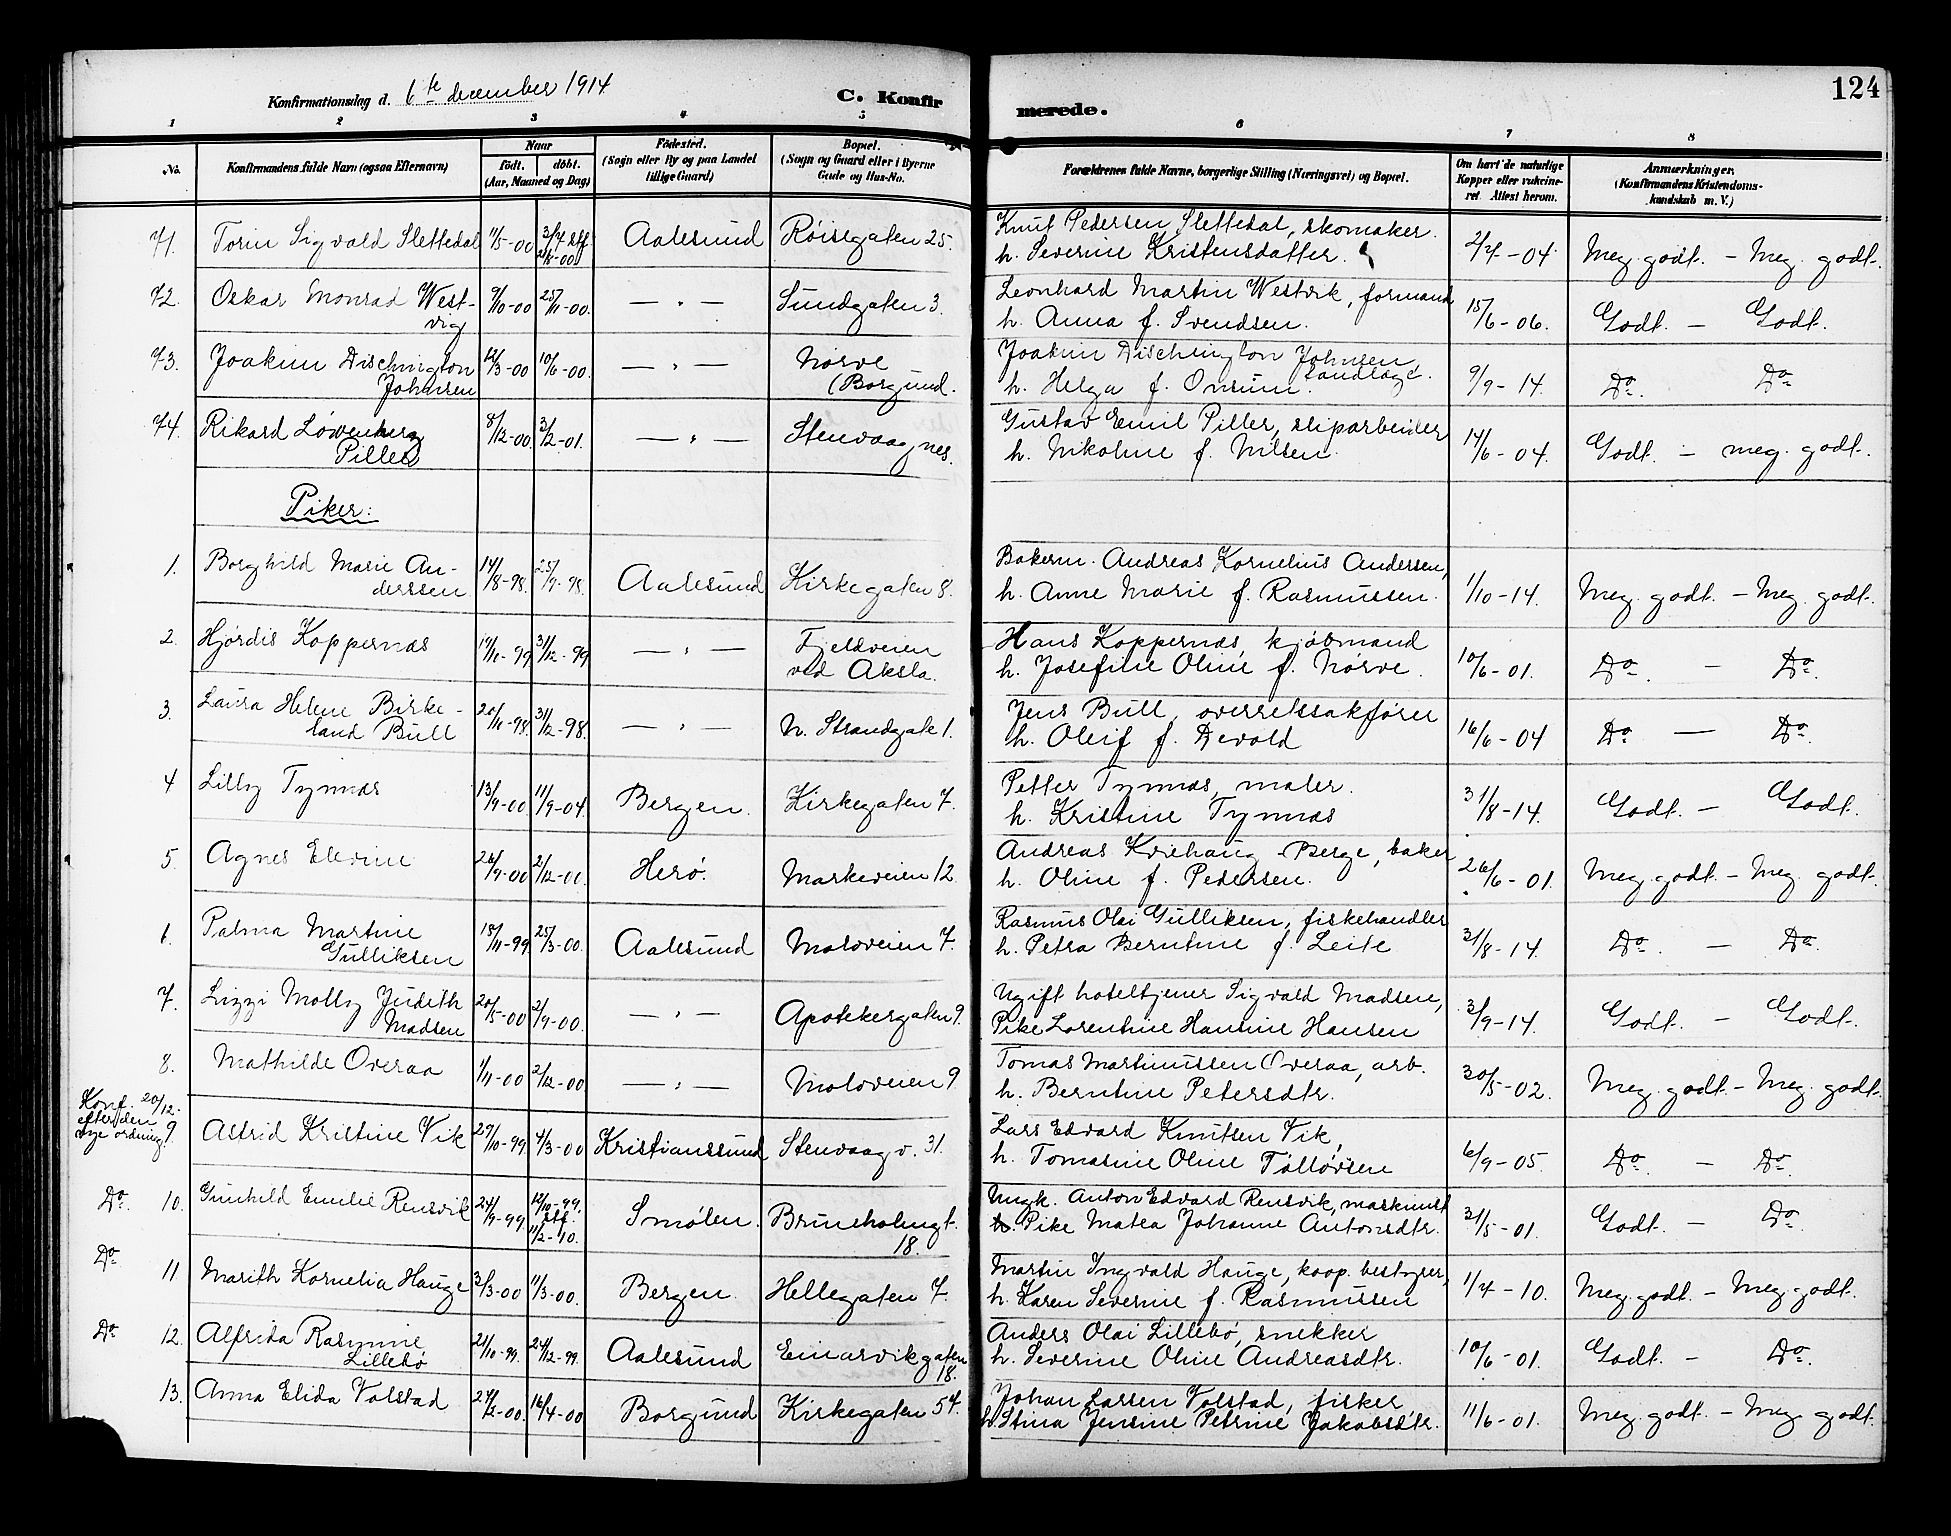 124
Konfirmationsdag d. 6te december 1914
C. Konfirmerede.
1 2 3 4 5 6 7 8
No.
Konfirmandens fulde Navn (ogsaa Efternavn)
Naar
født. døbt.
(Aar, Maaned og Dag)
Fødested.
(Sogn eller By og paa Landet
tillige Gaard)
Bopæl.
(Sogn og Gaard eller i Byerne
Gade og Hus-No.
Forældrenes fulde Navne, borgerlige Stilling (Næringsvei) og Bopæl.
Om havt de naturlige
Kopper eller vakcine-
ret. Attest herom.
Anmærkninger.
(Konfirmandens Kristendoms-
kundskab m. V.)
71. Torin Sigvald Slettedal 1/5-00 3/7 stf. Aalesund Røisegaten 25. Knut Pedersen Slettedal, skomaker. 2/7-04 Meg. godt. - Meg. godt.
h. Severine Kristensdatter.
72. Oskar Monrad West- 9/10-00 25/11-00. — " — Sundgaten 3. Leonhard Martin Westvik, formand 15/6-06. Godt. - Godt.
vig h. Anna f. Svendsen.
73. Joakim Dischington 12/3-00 10/6-00. — " — Nørve Joakim Dischington Johnsen 9/9-14. Do. Do
Johnsen (Borgund. h. Helga f. Onsum.
74. Rikard Løwenberg 8/12-00. 3/2-01. — " — Stenvaagnes. Gustav Emil Piller, sliparbeider 14/6-04. Godt. - meg. godt.
Piller h. Nikoline f. Nilsen.
Piker:
1. Borghild Marie An- 14/8-98. 25/9-98. Aalesund Kirkegaten 8. Bakerm. Andreas Kornelius Andersen, 1/10-14. Meg. godt. - Meg. godt.
derssen h. Anne Marie f. Rasmussen.
2. Hjørdis Koppernæs 19/11-99 31/12-99 — " — Fjeldveien Hans Koppernæs, kjøbmand 10/6-01. Do. - Do.
ved Aksla. h. Josefine Oline f. Nørve.
3. Laura Helene Birke- 20/11-98. 31/12-98. — " — N. Strandgate 1. Jens Bull, overretssakfører 16/6-04 Do - Do.
land Bull h. Oleif f. Devold
4 Lilly Tynnæs 13/9-00 11/9-04. Bergen. Kirkegaten 7. Petter Tynnæs, maler. 31/8-14. Godt. - Godt.
h. Kristine Tynnæs
5. Agnes Elevine 26/9-00 2/12-00. Herø. Markeveien 12 Andreas Berge, baker 26/6-01. Meg. godt. - Meg. godt.
h. Oline f. Pedersen.
6. Palma Martine 18/11-99 25/3-00. Aalesund Moloveien 7. Rasmus Olai Gulliksen, fiskehandler 31/8-14. Do. - Do.
Gulliksen h. Petra Berntine f. Leite
7. Lizzi Molly Judith 20/5-00 2/9-00. — " — Apotekergaten 9. Ugift hoteltjener Sigvald Madsen, 3/9-14. Godt. - Godt.
Madsen Pike Lorentine Hannine Hansen
8. Mathilde Overaa 1/11-00 2/12-00 — " — Moloveien 9. Tomas Martinussen Overaa, arb. 30/5-02. Meg. godt. - Meg. godt.
h. Berntine Petersdtr.
Konf. 20/12.
efter den
nye ordning. 9. Astrid Kristine Vik 29/10-99. 4/3-00 Kristianssund Stenvaagv. 31. Lars Edvard Knutsen Vik, 6/9-05. Do. - Do.
h. Tomasine Oline Tolløvsen
Do. 10. Gunhild Emelie Rensvik 24/9-99 12/10-99. Smølen. Bruneholmgt. Ungk. Anton Edvard Rensvik, maskinist 31/5-01. Godt. - Do.
stf. 11/2-10. 18. Pike Matea Johanne Antonsdtr.
Do 11 Marith Kornelia Hauge 3/3-00 11/3-00. Bergen. Hellegaten 7. Martin Ingvald Hauge, koop. bestyrer, 1/7-10. Meg. godt. - Meg. godt.
h. Karen Severine f. Rasmussen
Do 12. Alfrida Rasmine 21/10-99. 24/12-99. Aalesund Einarvikgaten Anders Olai Lillebø, snekker 10/6-01. Godt. - Do.
Lillebø 18. h. Severine Oline Andreasdtr.
13. Anna Elida Valstad 16/4-00 Borgund Kirkegaten 57. Johan Larsen Valstad, fisker 11/6-01. Meg. godt. - Meg. godt.
h. Stina Jensine Petrine Jakobsdtr.